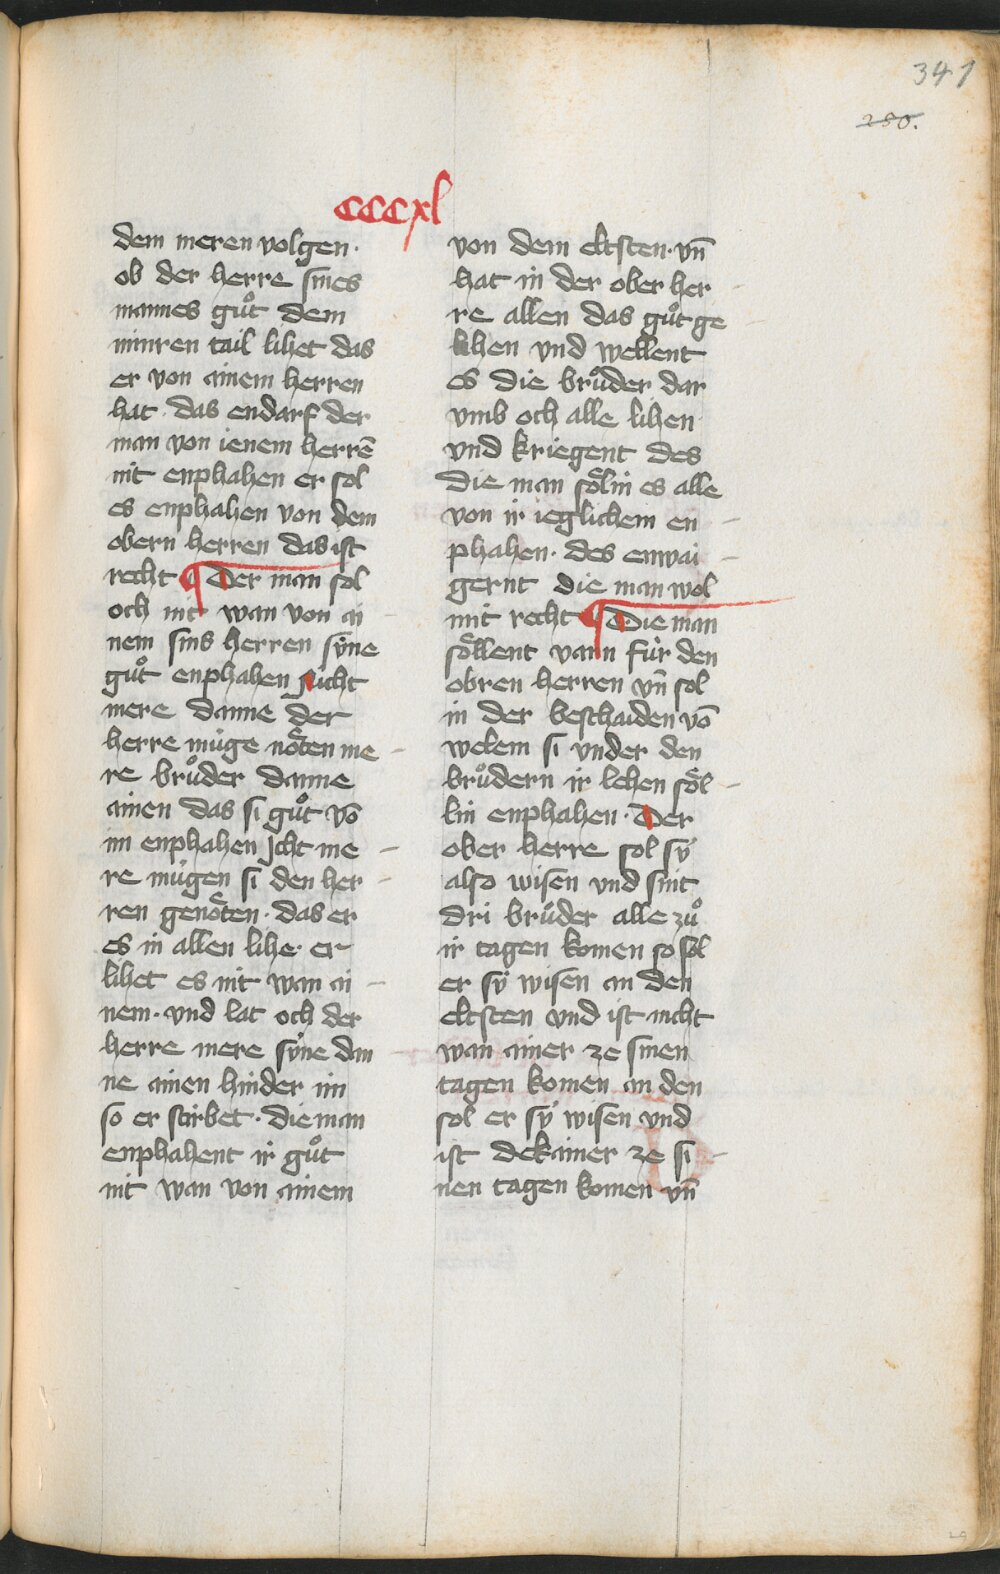 341
280.
cccxl
dem meren volgen·
ob der herre sines
mannes guͦt dem
minren tail lihet das
er von ainem herren
hat· das endarf der
man von ienem herrē
nit enphahen er sol
es enphahen von dem
obern herren das ist
recht ¶ Der man sol
och nit wan von ai-
nem sins herren sv̈ne
guͦt enphahen Nicht
mere danne der
herre muͤge noͤten me-
re bruͦder danne
ainen das si guͦt vō
im enphahen Jcht me-
re muͤgen si den her-
ren genoͤten· das er
es in allen lihe· er
lihet es nit wan ai-
nem· vnd lat och der
herre mere sv̈ne dan-
ne ainen hinder im
so er stirbet· die man
enphahent ir guͦt
nit wan von ainem
von dem eltsten· vn̄
hat in der ober her-
re allen das guͦt ge-
lihen vnd wellent
es die bruͤder dar
vmb och alle lihen
vnd kriegent des
die man soͤlin es alle
von ir ieglichem en-
phahen· des enwai-
gernt die man wol
mit recht ¶ Die man
soͤllent varn fuͤr den
obren herren vn̄ sol
in der beschaiden vō
welem si vnder den
bruͦdern ir lehen soͤl-
lin enphahen· Der
ober herre sol sÿ
also wisen vnd sint
dri bruͤder alle zuͦ
ir tagen komen so sol
er sÿ wisen an den
eltsten vnd ist nicht
wan ainer ze sinen
tagen komen an den
sol er sÿ wisen vnd
ist dekainer ze si-
nen tagen komen vn̄